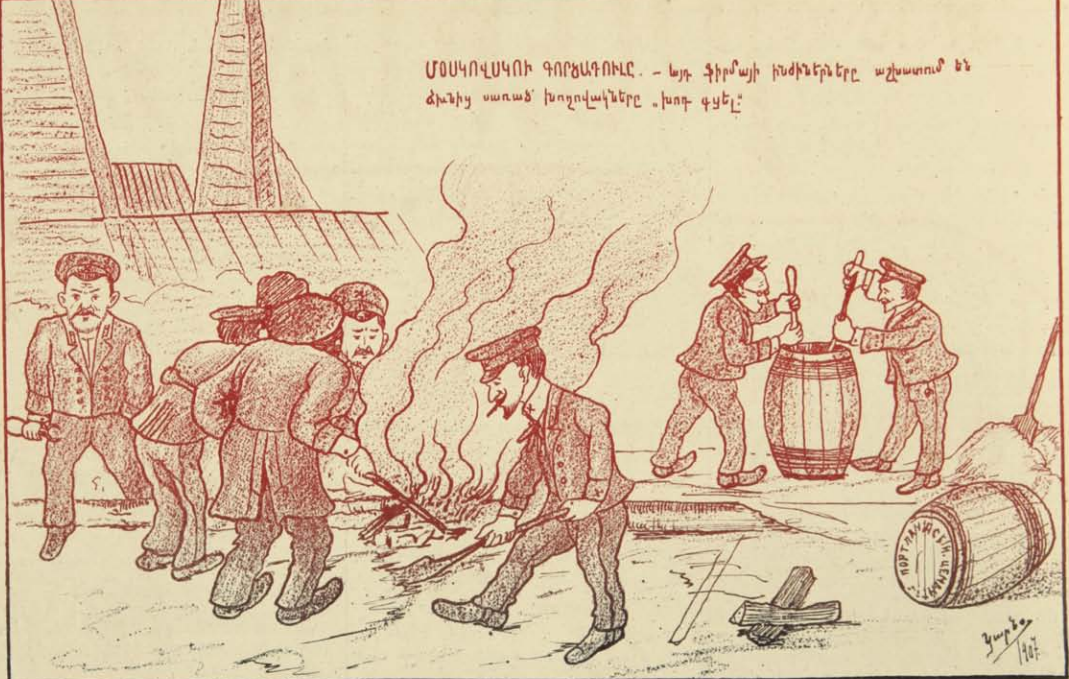 ՄՕՍԿՈՎՍԿՈՒ ԳՈՐԾԱԴՈՒԼԸ. – այդ ֆիրմայի ինժիներները աշխատում են
ձիւնից սառած խողովակները „խոդ գցել:“
ПОРТЛАНДСКІЙ ЦЕМЕНТ
1907